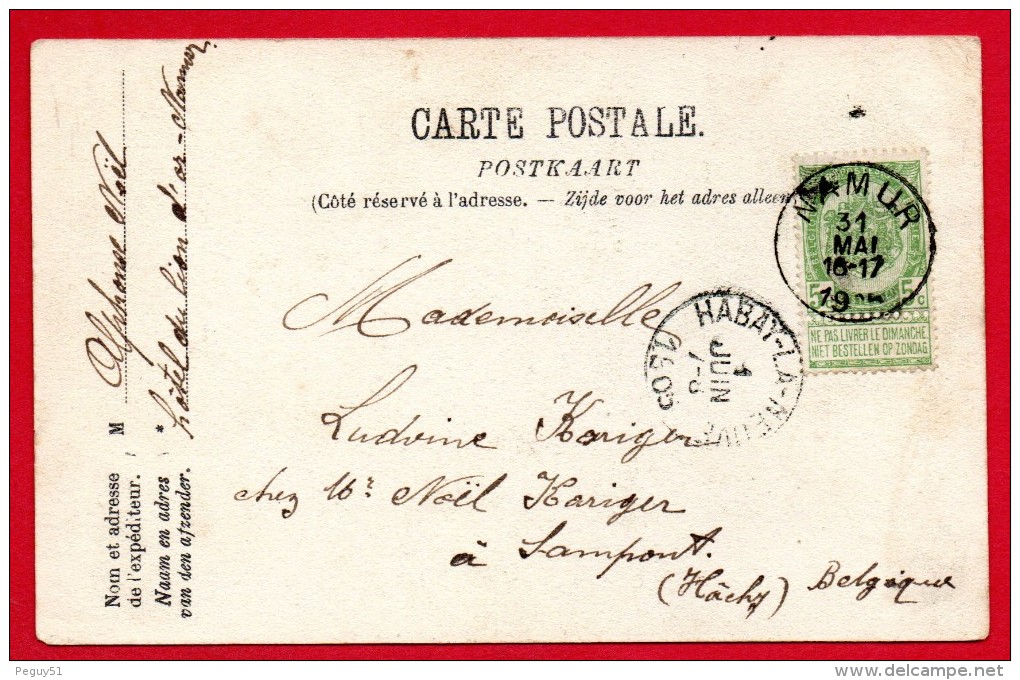 CARTE POSTALE.
POSTKAART
(Côté réservé à l'adresse. — Zijde voor het adres alleen
NAMUR
31
MAI
16-17
1905
5 5c
NE PAS LIVRER LE DIMANCHE
NIET BESTELLEN OP ZONDAG
HABAY-LA-NEUVE
1
JUIN
7-8
1905
Mademoiselle
Ludvine Kariger
chez Mr Noël Kariger
à Sampont.
(Hâchy) Belgique
Nom et adresse
de l'expéditeur.
Naam en adres
van den afzender.
M Alphonse Noël
* hôtel du lion d'or - Namur.
Peguy51
delcampe.net